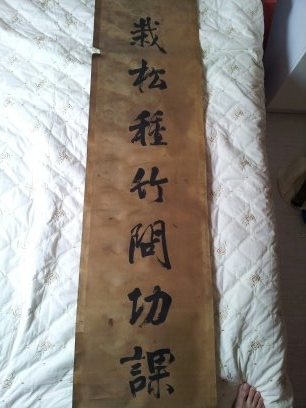 栽松種竹閒功課